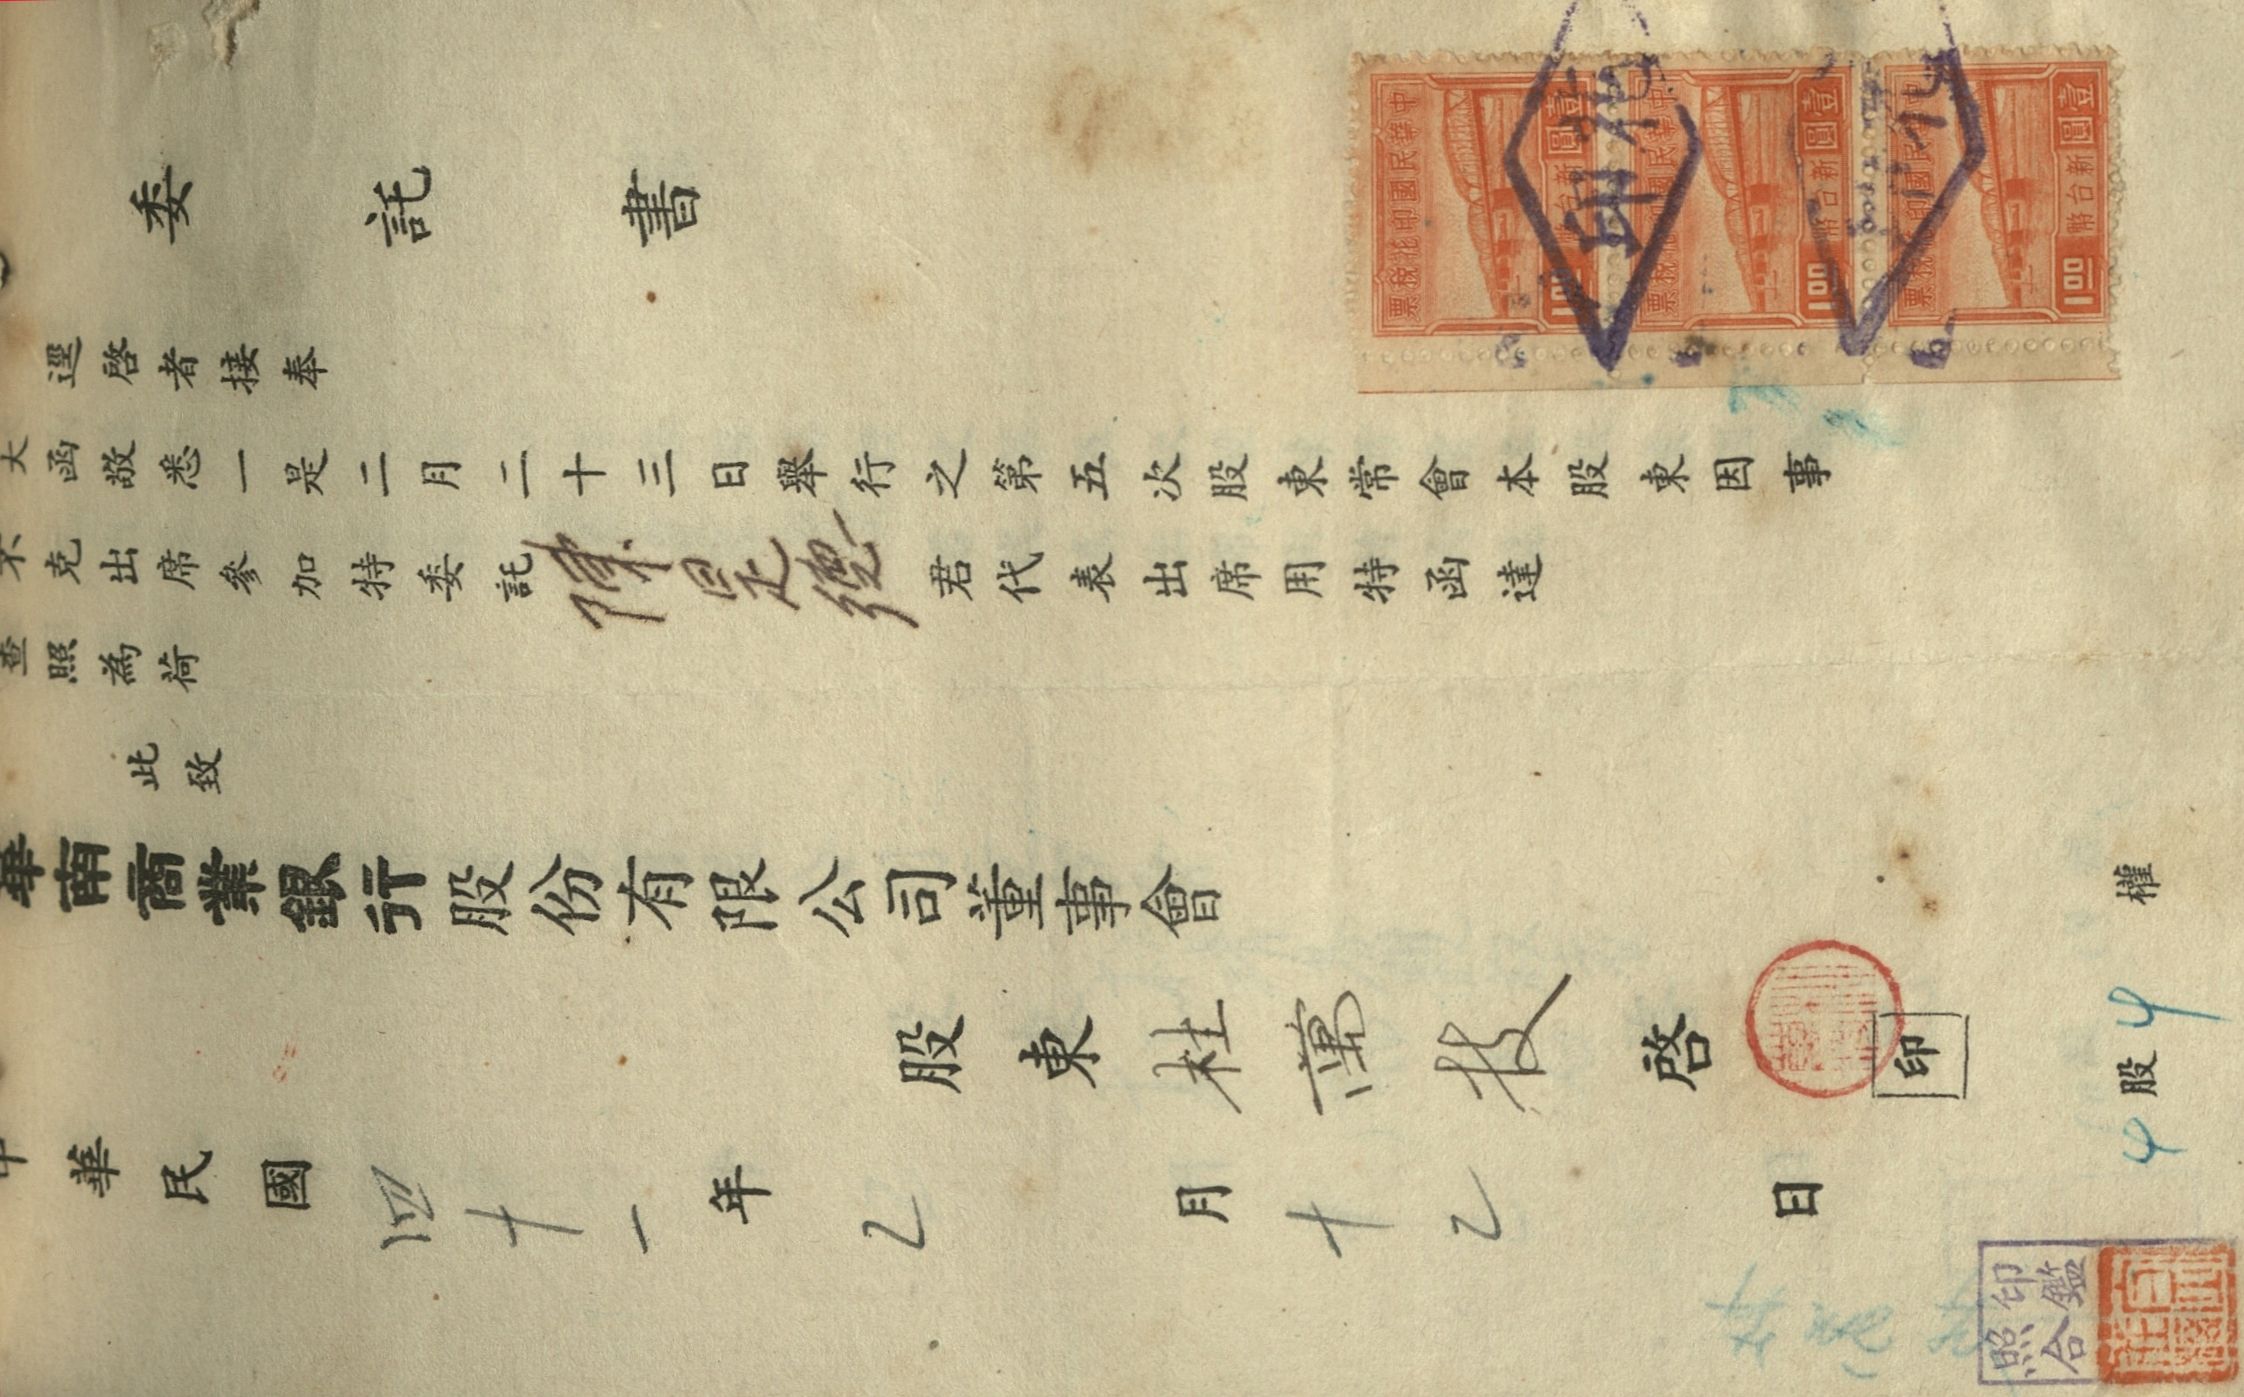 委託書
逕啓者接奉
大函敬悉一是二月二十三日舉行之第五次股東常會本股東因事
不克出席參加特委託陳
君代表出席用特函達
查照為荷
此致
華南商業銀行股份有限公司董事會
股東杜萬枝啓
印
中華民國四十一年2月十2日
4股4權
印鑑
照合
中華民國印花稅票
壹圓
新台幣
1.00
中華民國印花稅票
壹圓
新台幣
1.00
中華民國印花稅票
壹圓
新台幣
1.00
印花